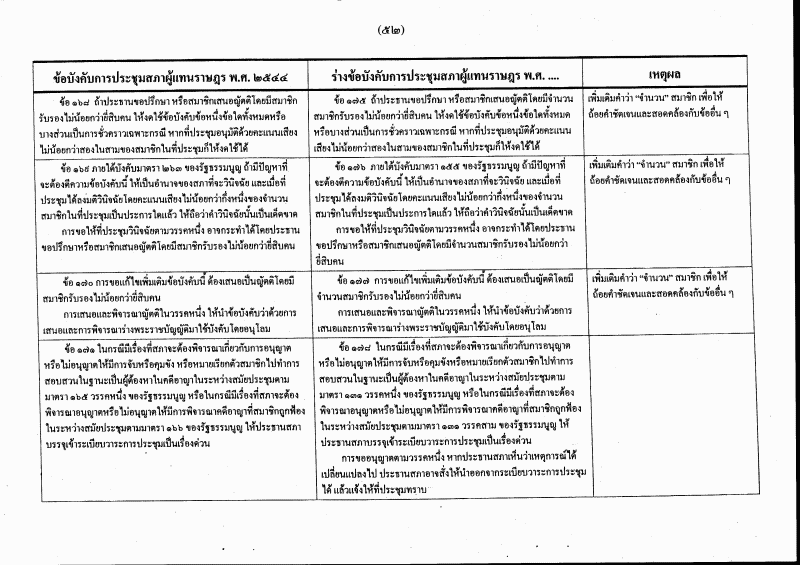 (๕๒)
ข้อบังคับการประชุมสภาผู้แทนราษฎร พ.ศ. ๒๕๔๔
ร่างข้อบังคับการประชุมสภาผู้แทนราษฎร พ.ศ. ....
เหตุผล
ข้อ ๑๖๘ ถ้าประธานขอปรึกษา หรือสมาชิกเสนอญัตติโดยมีสมาชิก
รับรองไม่น้อยกว่ายี่สิบคน ให้งดใช้ข้อบังคับข้อหนึ่งข้อใดทั้งหมดหรือ
บางส่วนเป็นการชั่วคราวเฉพาะกรณี หากที่ประชุมอนุมัติด้วยคะแนนเสียง
ไม่น้อยกว่าสองในสามของสมาชิกในที่ประชุมก็ให้งดใช้ได้
ข้อ ๑๗๕ ถ้าประธานขอปรึกษา หรือสมาชิกเสนอญัตติโดยมีจำนวน
สมาชิกรับรองไม่น้อยกว่ายี่สิบคน ให้งดใช้ข้อบังคับข้อหนึ่งข้อใดทั้งหมด
หรือบางส่วนเป็นการชั่วคราวเฉพาะกรณี หากที่ประชุมอนุมัติด้วยคะแนน
เสียงไม่น้อยกว่าสองในสามของสมาชิกในที่ประชุมก็ให้งดใช้ได้
เพิ่มเติมคำว่า “จำนวน” สมาชิก เพื่อให้
ถ้อยคำชัดเจนและสอดคล้องกับข้ออื่น ๆ
ข้อ ๑๖๙ ภายใต้บังคับมาตรา ๒๖๓ ของรัฐธรรมนูญ ถ้ามีปัญหาที่
จะต้องตีความข้อบังคับนี้ ให้เป็นอำนาจของสภาที่จะวินิจฉัย และเมื่อที่
ประชุมได้ลงมติวินิจฉัยโดยคะแนนเสียงไม่น้อยกว่ากึ่งหนึ่งของจำนวน
สมาชิกในที่ประชุมเป็นประการใดแล้ว ให้ถือว่าคำวินิจฉัยนั้นเป็นเด็ดขาด
การขอให้ที่ประชุมวินิจฉัยตามวรรคหนึ่ง อาจกระทำได้โดยประธาน
ขอปรึกษาหรือสมาชิกเสนอญัตติโดยมีสมาชิกรับรองไม่น้อยกว่ายี่สิบคน
ข้อ ๑๗๖ ภายใต้บังคับมาตรา ๑๕๕ ของรัฐธรรมนูญ ถ้ามีปัญหาที่
จะต้องตีความข้อบังคับนี้ ให้เป็นอำนาจของสภาที่จะวินิจฉัย และเมื่อที่
ประชุมได้ลงมติวินิจฉัยโดยคะแนนเสียงไม่น้อยกว่ากึ่งหนึ่งของจำนวน
สมาชิกในที่ประชุมเป็นประการใดแล้ว ให้ถือว่าคำวินิจฉัยนั้นเป็นเด็ดขาด
การขอให้ที่ประชุมวินิจฉัยตามวรรคหนึ่ง อาจกระทำได้โดยประธาน
ขอปรึกษาหรือสมาชิกเสนอญัตติโดยมีจำนวนสมาชิกรับรองไม่น้อยกว่า
ยี่สิบคน
เพิ่มเติมคำว่า “จำนวน” สมาชิก เพื่อให้
ถ้อยคำชัดเจนและสอดคล้องกับข้ออื่น ๆ
ข้อ ๑๗๐ การขอแก้ไขเพิ่มเติมข้อบังคับนี้ ต้องเสนอเป็นญัตติโดยมี
สมาชิกรับรองไม่น้อยกว่ายี่สิบคน
การเสนอและพิจารณาญัตติในวรรคหนึ่ง ให้นำข้อบังคับว่าด้วยการ
เสนอและการพิจารณาร่างพระราชบัญญัติมาใช้บังคับโดยอนุโลม
ข้อ ๑๗๗ การขอแก้ไขเพิ่มเติมข้อบังคับนี้ ต้องเสนอเป็นญัตติโดยมี
จำนวนสมาชิกรับรองไม่น้อยกว่ายี่สิบคน
การเสนอและการพิจารณาญัตติในวรรคหนึ่ง ให้นำข้อบังคับว่าด้วยการ
เสนอและการพิจารณาร่างพระราชบัญญัติมาใช้บังคับโดยอนุโลม
เพิ่มเติมคำว่า “จำนวน” สมาชิก เพื่อให้
ถ้อยคำชัดเจนและสอดคล้องกับข้ออื่น ๆ
ข้อ ๑๗๑ ในกรณีมีเรื่องที่สภาจะต้องพิจารณาเกี่ยวกับการอนุญาต
หรือไม่อนุญาตให้มีการจับหรือคุมขัง หรือหมายเรียกตัวสมาชิกไปทำการ
สอบสวนในฐานะเป็นผู้ต้องหาในคดีอาญาในระหว่างสมัยประชุมตาม
มาตรา ๑๖๕ วรรคหนึ่ง ของรัฐธรรมนูญ หรือในกรณีมีเรื่องที่สภาจะต้อง
พิจารณาอนุญาตหรือไม่อนุญาตให้มีการพิจารณาคดีอาญาที่สมาชิกถูกฟ้อง
ในระหว่างสมัยประชุมตามมาตรา ๑๖๖ ของรัฐธรรมนูญ ให้ประธานสภา
บรรจุเข้าระเบียบวาระการประชุมเป็นเรื่องด่วน
ข้อ ๑๗๘ ในกรณีมีเรื่องที่สภาจะต้องพิจารณาเกี่ยวกับการอนุญาต
หรือไม่อนุญาตให้มีการจับหรือคุมขังหรือหมายเรียกตัวสมาชิกไปทำการ
สอบสวนในฐานะเป็นผู้ต้องหาในคดีอาญาในระหว่างสมัยประชุมตาม
มาตรา ๑๓๑ วรรคหนึ่ง ของรัฐธรรมนูญ หรือในกรณีมีเรื่องที่สภาจะต้อง
พิจารณาอนุญาตหรือไม่อนุญาตให้มีการพิจารณาคดีอาญาที่สมาชิกถูกฟ้อง
ในระหว่างสมัยประชุมตามมาตรา ๑๓๑ วรรคสาม ของรัฐธรรมนูญ ให้
ประธานสภาบรรจุเข้าระเบียบวาระการประชุมเป็นเรื่องด่วน
การขออนุญาตตามวรรคหนึ่ง หากประธานสภาเห็นว่าเหตุการณ์ได้
เปลี่ยนแปลงไป ประธานสภาอาจสั่งให้นำออกจากระเบียบวาระการประชุม
ได้ แล้วแจ้งให้ที่ประชุมทราบ